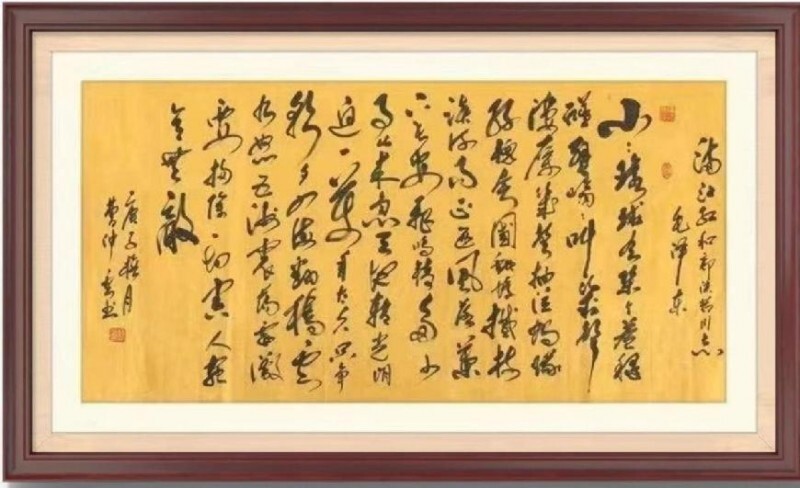 满江红和郭沫若同志
毛泽东
小〻環球有幾个苍蝇
碰壁嗡〻叫几声
凄厉幾聲抽泣蚂蚁
缘槐夸大国蚍蜉撼树
谈何易正西风落葉
下长安飞鸣镝多少
事从来急天地转光阴
迫一万年太久只争
朝夕四海翻腾云
水怒五洲震荡风雷激
要扫除一切害人虫
全無敵
庚子桂月
曹仲书